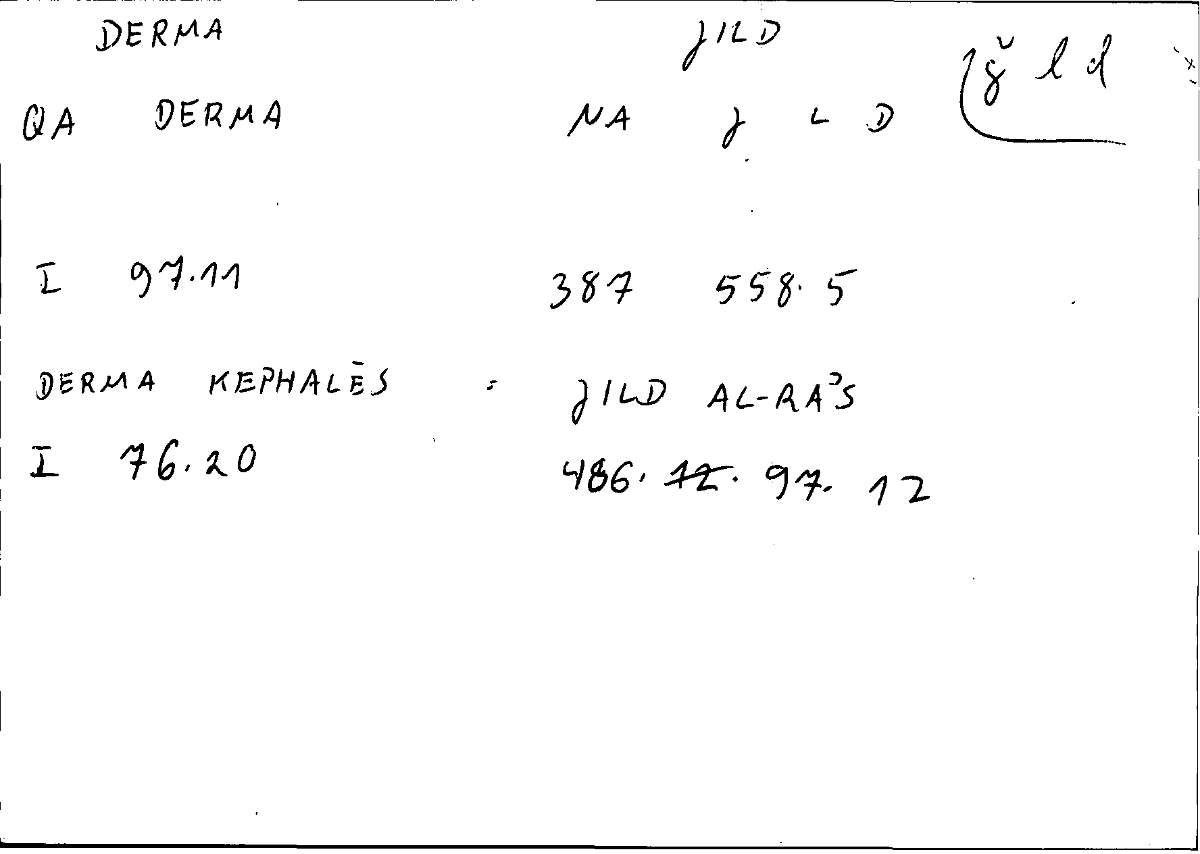 DERMA JILD
QA DERMA NA J L D ǧ l d
I 97.11 387 558.5
DERMA KEPHALĒS = JILD AL-RAʾS
I 76.20 486. 12. 97. 12